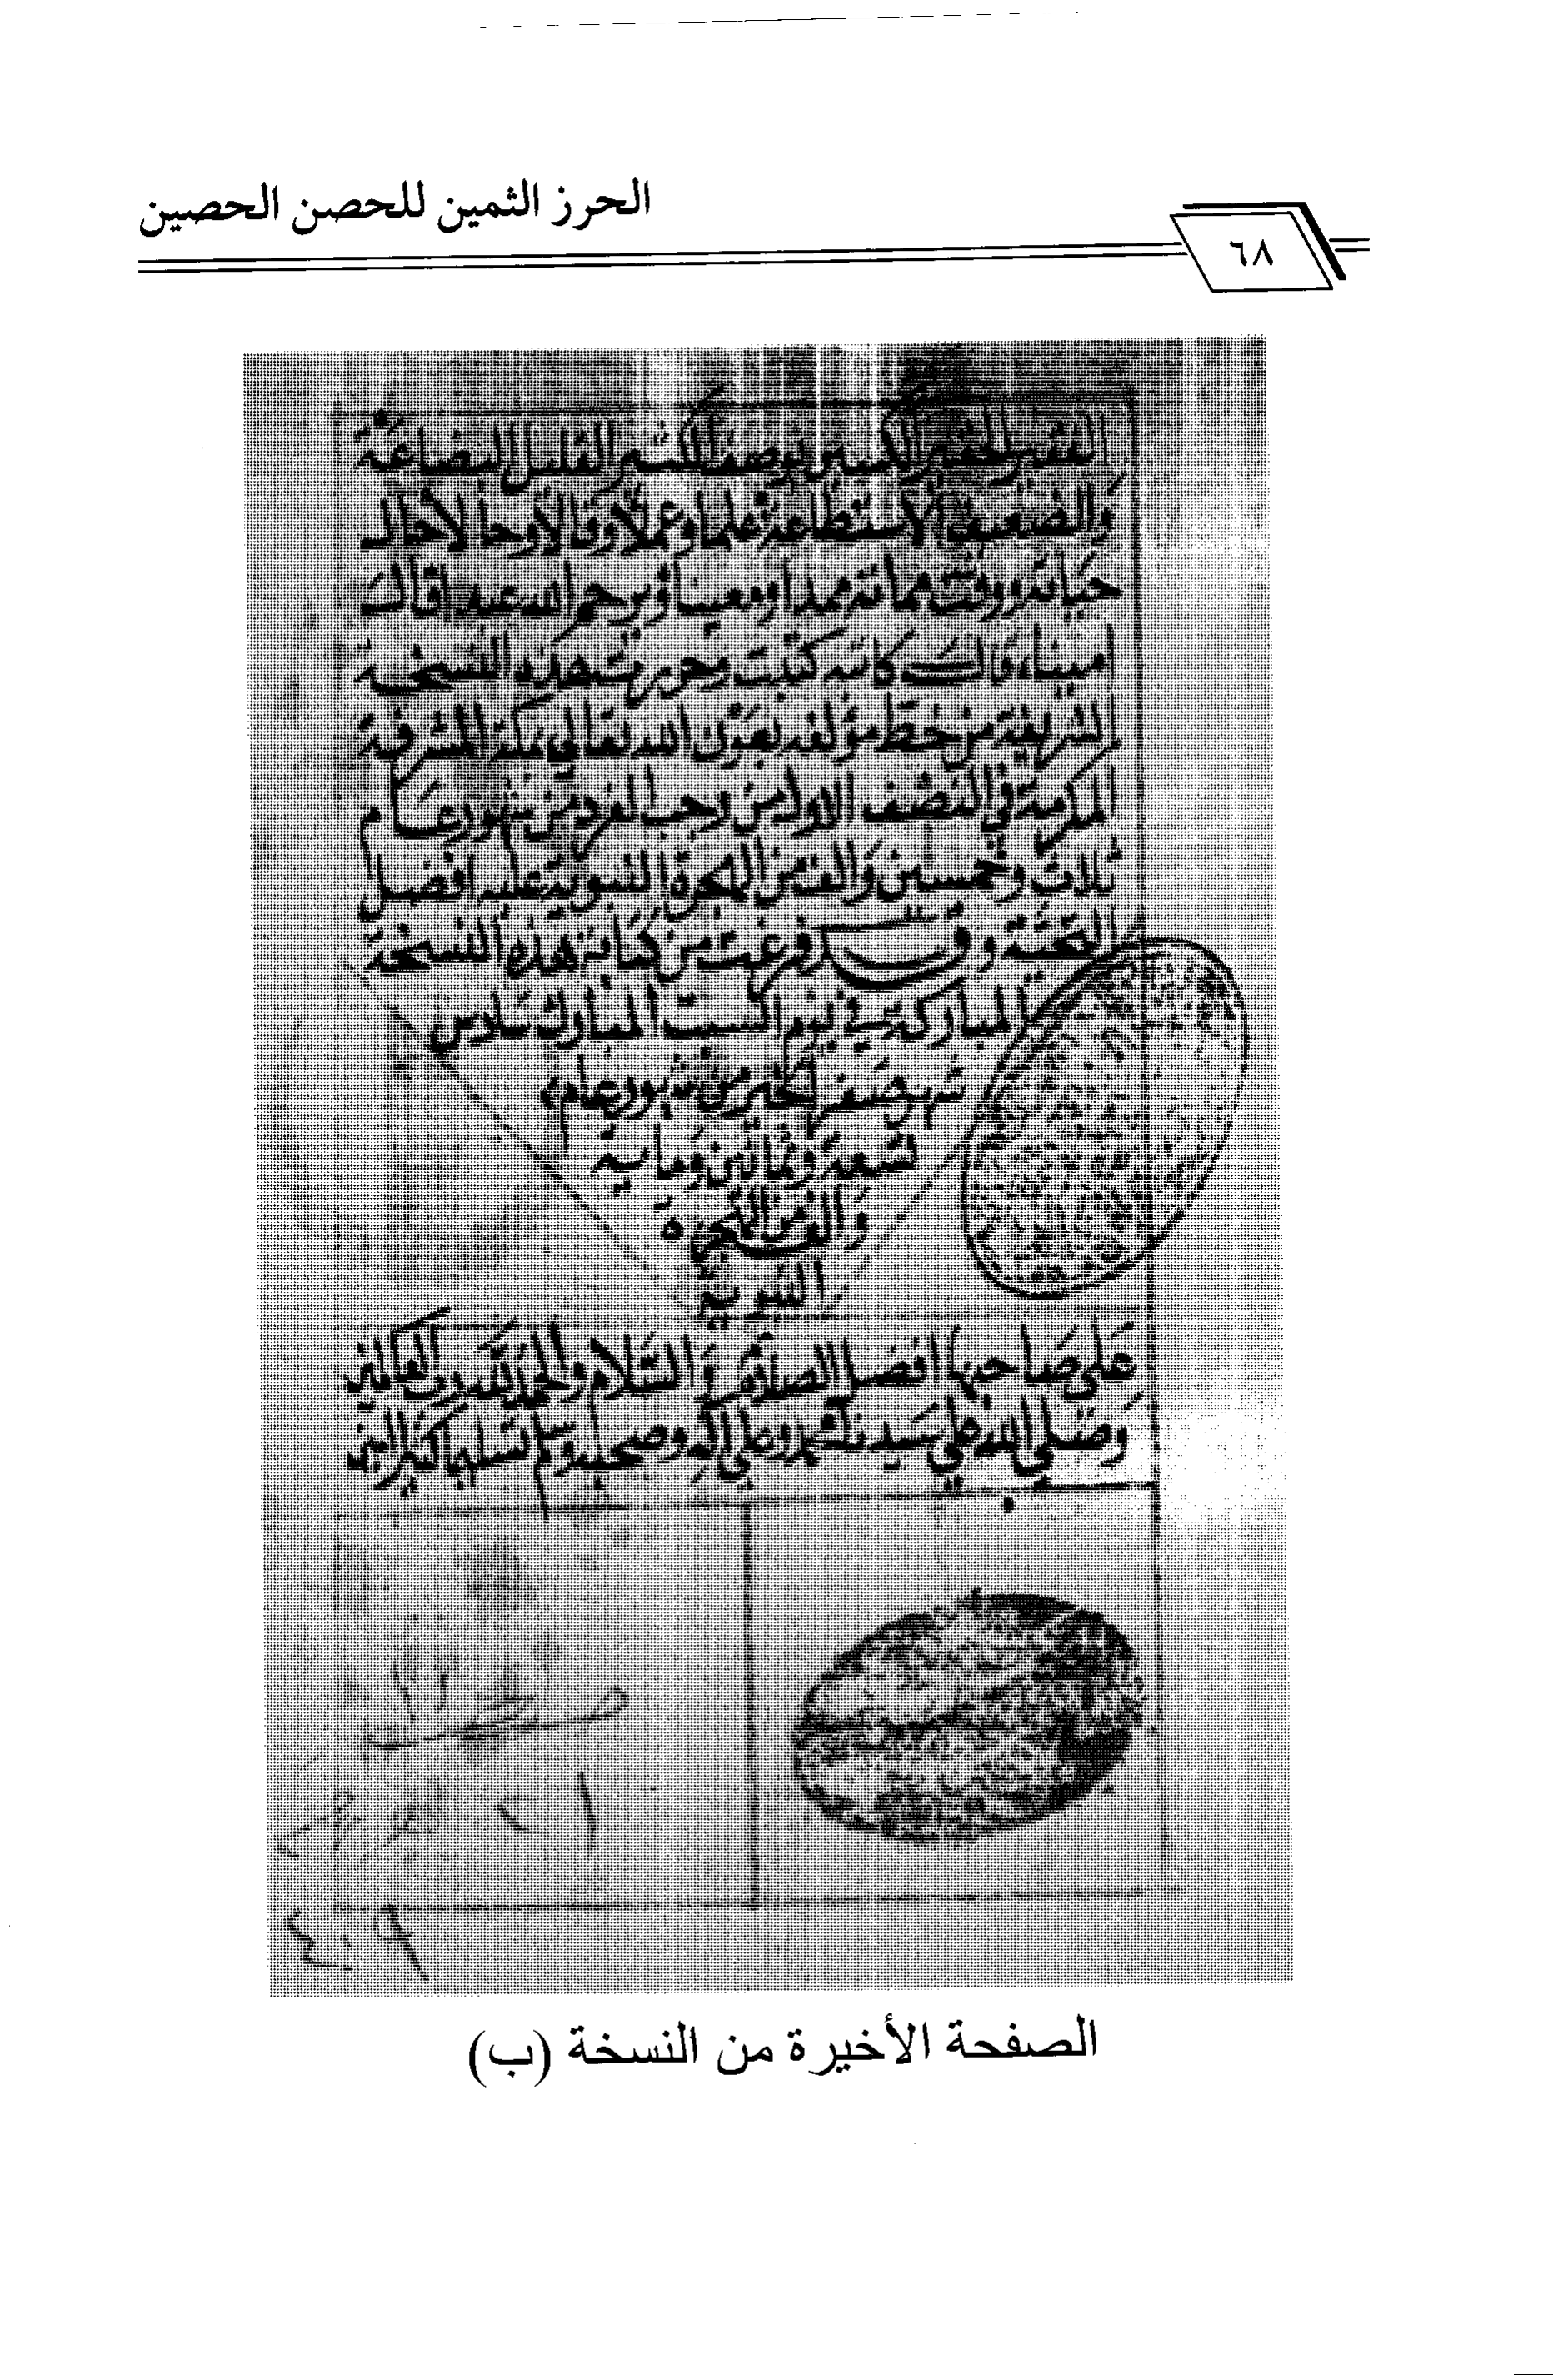 الحرز الثمين للحصن الحصين
٦٨
الفقير الحقير الكسير بوصف الكثير القليل البضاعة
والضعيف الاستطاعة علما وعملا وقالا وحالا حال
حياته ووقت مماته ممدا ومعينا ويرحم الله عبدا قال
امينا قال كاتبه كتبت وحررت هذه النسخة
الشريفة من خط مؤلفه بعون الله تعالي بمكة المشرفة
المكرمة في النصف الاول من رجب الفرد من شهور عام
ثلاث وخمسين والف من الهجرة النبوية عليه افضل
التحية وقد فرغت من كتابة هذه النسخة
المباركة في يوم السبت المبارك سادس
شهر صفر الخير من شهور عام
تسعة وثمانين وماية
والف من الهجرة
النبوية
علي صاحبها افضل الصلاة والسلام والحمد لله رب العالمين
وصلي الله علي سيدنا محمد وعلي اله وصحبه وسلم تسليما كثيرا امين
٤٠٩
الصفحة الأخيرة من النسخة (ب)